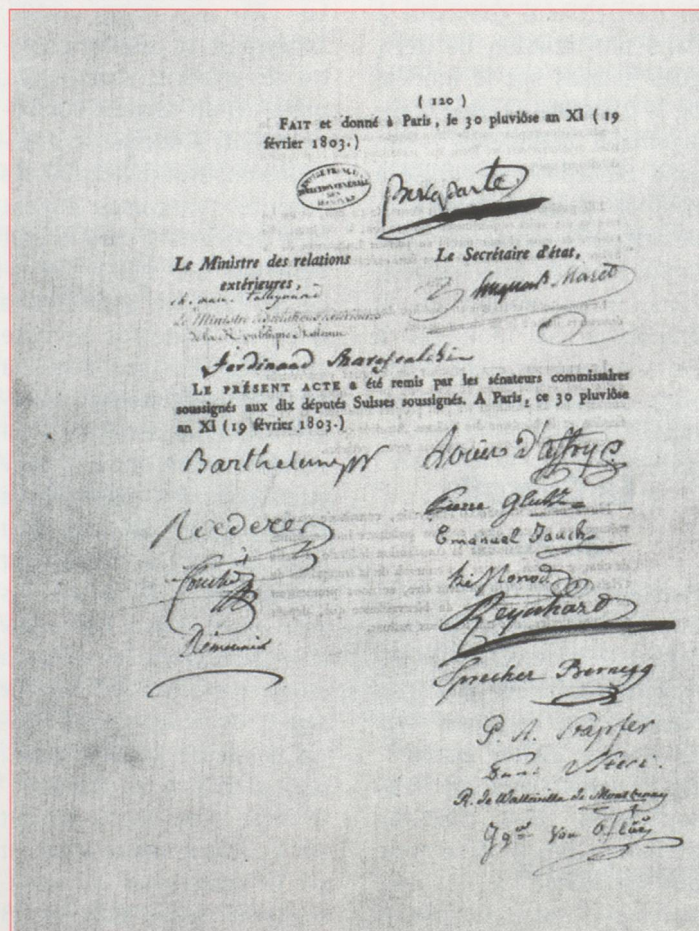 ( 120 )
FAIT et donné à Paris, le 30 pluviôse an XI ( 19
février 1803.)
Bonaparte
Le Ministre des relations
extérieures,
ch. mau. Talleyrand
Le Secrétaire d'état,
hugues B. Maret
Le Ministre des relations extérieures
de la République
Ferdinand Marescalchi
LE PRÉSENT ACTE a été remis par les sénateurs commissaires
soussignés aux dix députés Suisses soussignés. A Paris, ce 30 pluviôse
an XI (19 février 1803.)
Barthelemy
Rœderer
Fouché
Démeunier
Louis d'affry
Pierre Glutz
Emanuel Jauch
Monod
Reynhard
Sprecher Bernegg
P. A. Stapfer
Usteri.
R. de Watteville de Montbenay
von Flüe